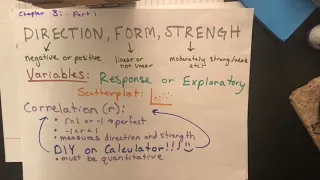 Chapter 3: Part 1
DIRECTION, FORM, STRENGH
negative or positive
linear or not linear
moderately strong/weak etc.
Variables: Response or Explanatory
Scatterplot:
Correlation (r):
• r = 1 or -1 → perfect
• -1 < r < 1
• measures direction and strength
• DIY or Calculator!!!
• must be quantitative